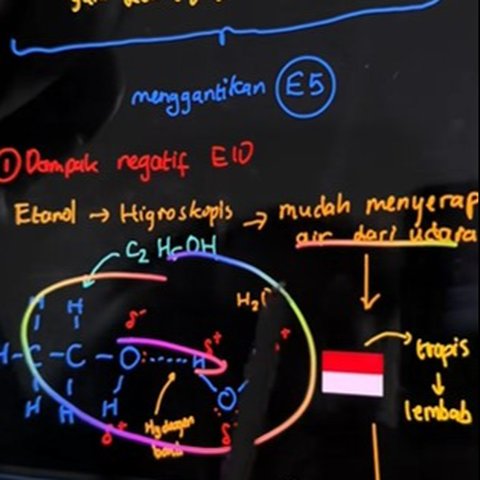 menggantikan E5
① Dampak negatif E10
Etanol → Higroskopis → mudah menyerap
air dari udara
C2H5OH
H
H
δ-
δ+
+
H-C-C-O:
H
H
H
H
O
δ+
δ
Hydrogen
bond
tropis
↓
lembab